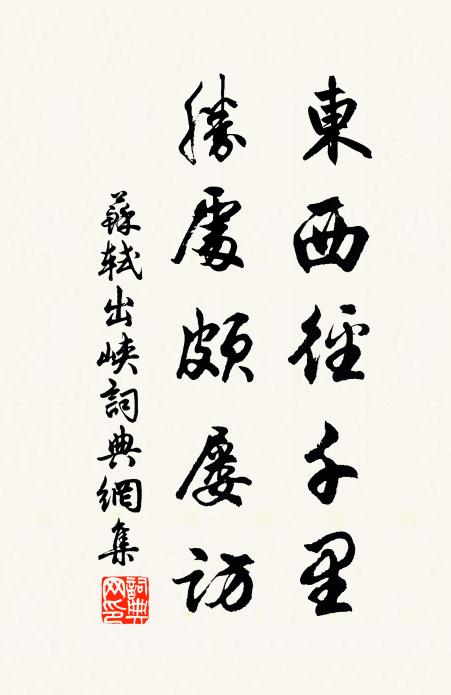 東西徑千里
勝處頗屢訪
蘇軾出峽詞典網集
詞典網印